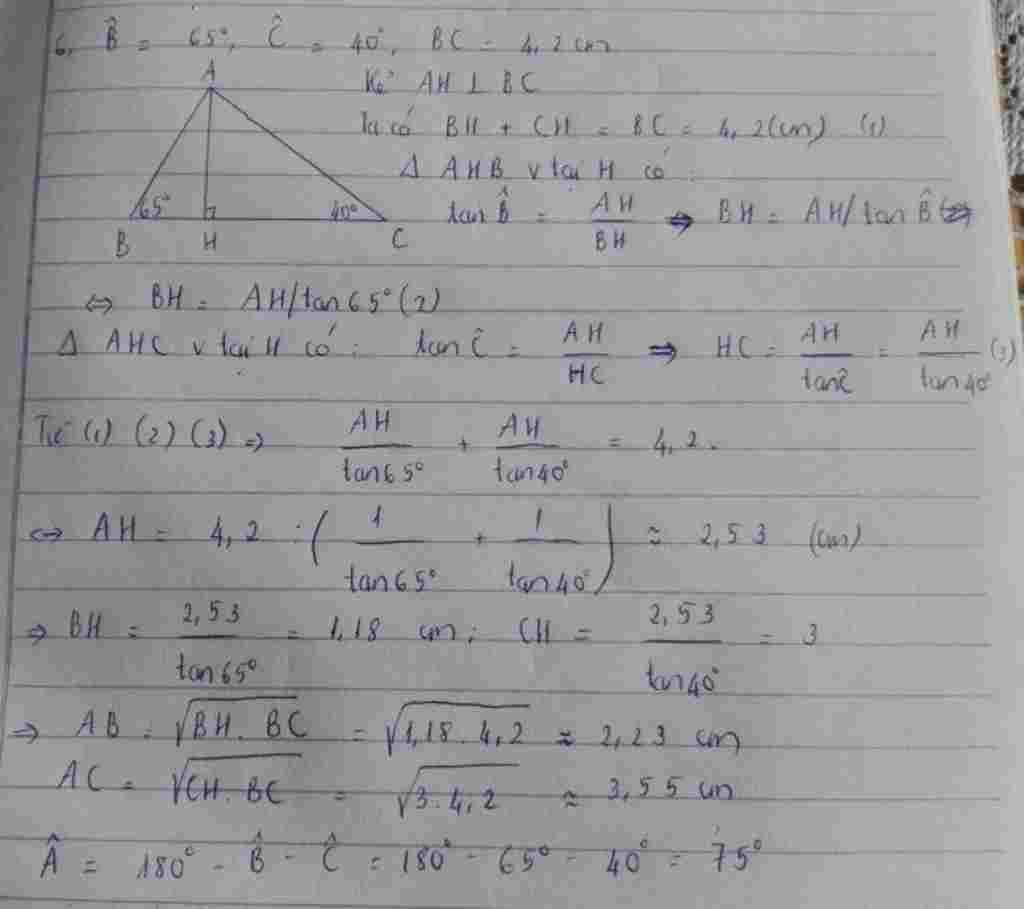 6, B̂ = 65°, Ĉ = 40°, BC = 4,2 cm
A
Kẻ AH ⊥ BC
Ta có BH + CH = BC = 4,2 (cm) (1)
Δ AHB v tại H có :
65° 40° tan B̂ = AH/BH ⇒ BH = AH/tan B̂
B H C
⇔ BH = AH/tan65° (2)
Δ AHC v tại H có : tan Ĉ = AH/HC ⇒ HC = AH/tanĈ = AH/tan40° (3)
Từ (1) (2) (3) ⇒ AH/tan65° + AH/tan40° = 4,2.
⇔ AH = 4,2 : (1/tan65° + 1/tan40°) ≈ 2,53 (cm)
⇒ BH = 2,53/tan65° = 1,18 cm ; CH = 2,53/tan40° = 3
⇒ AB = √(BH . BC) = √(1,18 . 4,2) ≈ 2,23 cm
AC = √(CH . BC) = √(3 . 4,2) ≈ 3,55 cm
Â = 180° - B̂ - Ĉ = 180° - 65° - 40° = 75°